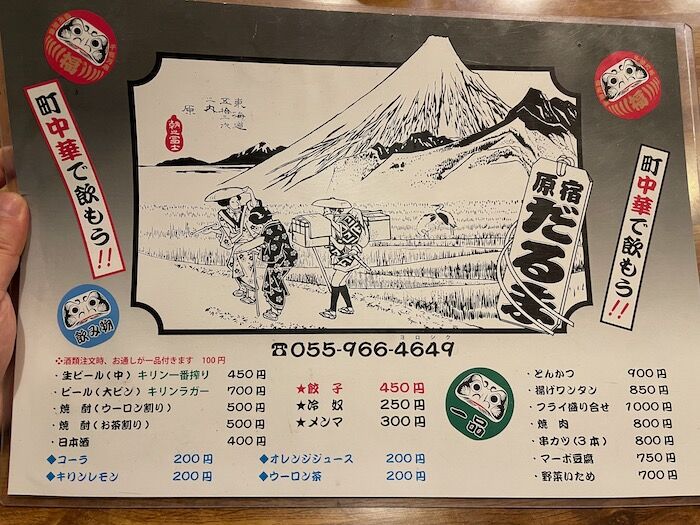 町中華で飲もう!!
東海道
五拾三次
之内
原
朝之富士
原宿
だるま
町中華で飲もう!!
飲み物
☎055-966-4649
ヨロシク
※酒類注文時、お通しが一品付きます 100円
・生ビール(中)キリン一番搾り 450円
・ビール(大ビン)キリンラガー 700円
・焼酎(ウーロン割り) 500円
・焼酎(お茶割り) 500円
・日本酒 400円
◆コーラ 200円
◆キリンレモン 200円
★餃子 450円
★冷奴 250円
★メンマ 300円
◆オレンジジュース 200円
◆ウーロン茶 200円
一品
・とんかつ 900円
・揚げワンタン 850円
・フライ盛り合せ 1000円
・焼肉 800円
・串カツ(3本) 800円
・マーボ豆腐 750円
・野菜いため 700円